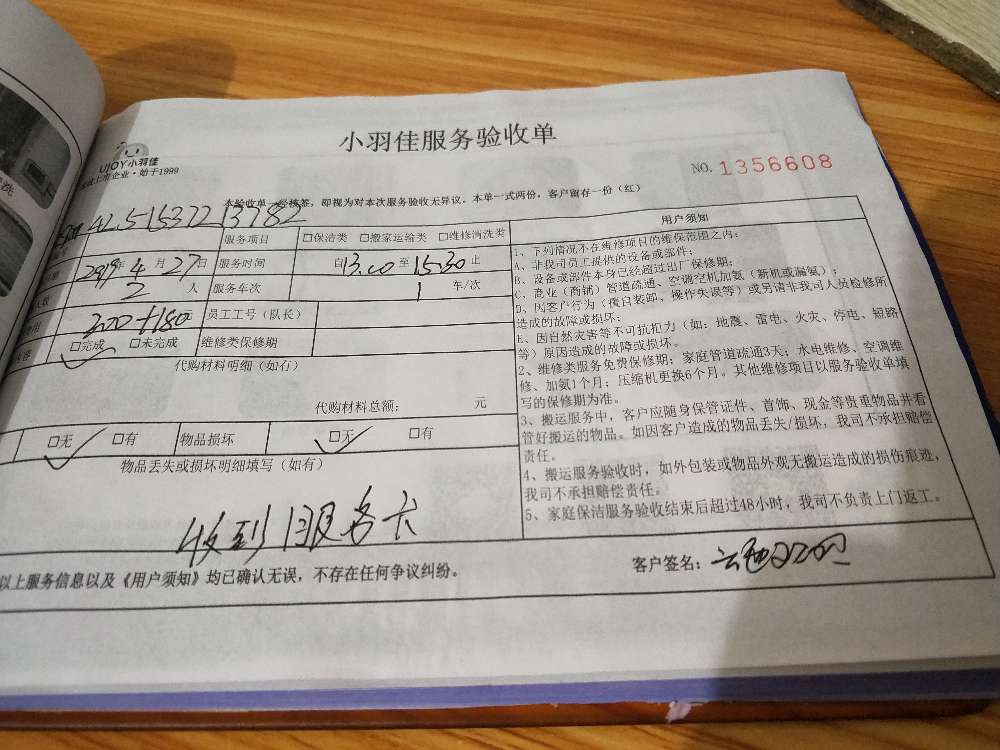 小羽佳服务验收单
UJOY小羽佳
上市企业·始于1999
NO. 1356608
本验收单一经核签，即视为对本次服务验收无异议。本单一式两份，客户留存一份（红）
服务项目 □保洁类 □搬家运输类 □维修清洗类
年 4 月 27 日 服务时间 自 13.00 至 15.30 止
2 人 服务车次 1 车/次
200+180 员工工号（队长）
□完成 □未完成 维修类保修期
代购材料明细（如有）
代购材料总额： 元
□无 □有 物品损坏 □无 □有
物品丢失或损坏明细填写（如有）
收到服务卡
以上服务信息以及《用户须知》均已确认无误，不存在任何争议纠纷。
客户签名：
用户须知
1、下列情况不在维修项目的维保范围之内：
A、非我司员工提供的设备或部件；
B、设备或部件本身已经超过出厂保修期；
C、商业（商铺）管道疏通、空调空机加氨（新机或漏氨）；
D、因客户行为（擅自装卸、操作失误等）或另请非我司人员检修所
造成的故障或损坏；
E、因自然灾害等不可抗拒力（如：地震、雷电、火灾、停电、短路
等）原因造成的故障或损坏。
2、维修类服务免费保修期：家庭管道疏通3天；水电维修、空调维
修、加氨1个月；压缩机更换6个月。其他维修项目以服务验收单填
写的保修期为准。
3、搬运服务中，客户应随身保管证件、首饰、现金等贵重物品并看
管好搬运的物品。如因客户造成的物品丢失/损坏，我司不承担赔偿
责任。
4、搬运服务验收时，如外包装或物品外观无搬运造成的损伤痕迹，
我司不承担赔偿责任。
5、家庭保洁服务验收结束后超过48小时，我司不负责上门返工。